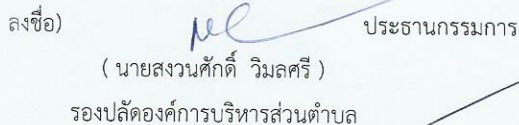 ลงชื่อ) ประธานกรรมการ
( นายสงวนศักดิ์ วิมลศรี )
รองปลัดองค์การบริหารส่วนตำบล